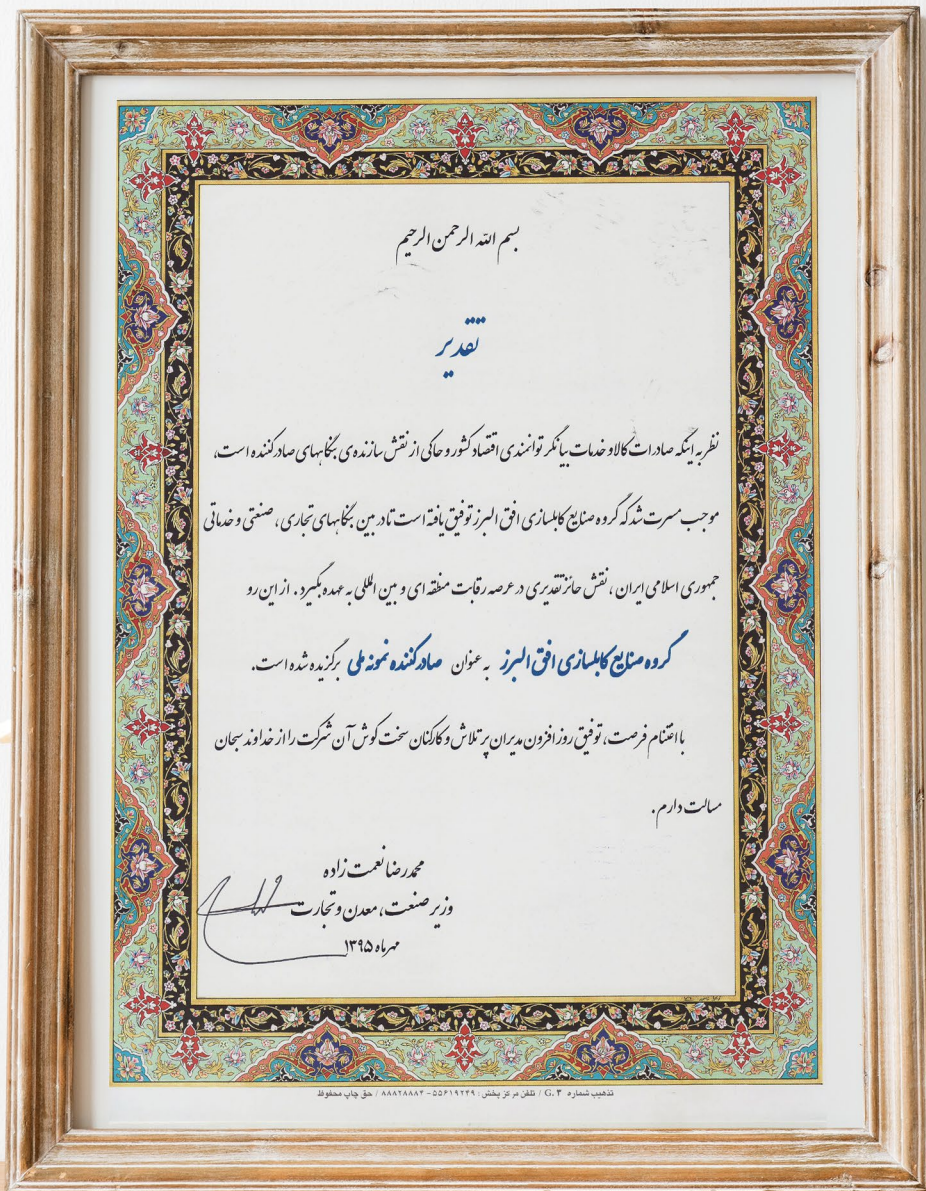 بسم الله الرحمن الرحیم
تقدیر
نظر به اینکه صادرات کالا و خدمات بیانگر توانمندی اقتصاد کشور و حاکی از نقش سازنده‌ی بنگاههای صادرکننده است،
موجب مسرت شد که گروه صنایع کابلسازی افق البرز توفیق یافته است تا در بین بنگاههای تجاری، صنعتی و خدماتی
جمهوری اسلامی ایران، نقش حائز تقدیری در عرصه رقابت منطقه ای و بین المللی به عهده بگیرد. از این رو
گروه صنایع کابلسازی افق البرز به عنوان صادرکننده نمونه ملی برگزیده شده است.
با اغتنام فرصت، توفیق روز افزون مدیران پر تلاش و کارکنان سخت کوش آن شرکت را از خداوند سبحان
مسالت دارم.
محمدرضا نعمت زاده
وزیر صنعت، معدن و تجارت
مهرماه ۱۳۹۵
تذهیب شماره G.۳ / تلفن مرکز پخش: ۵۵۶۱۹۲۴۹ - ۸۸۸۲۸۸۸۴ / حق چاپ محفوظ